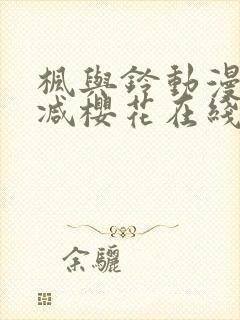 楓與鈴動漫
减櫻花在綫
余驪